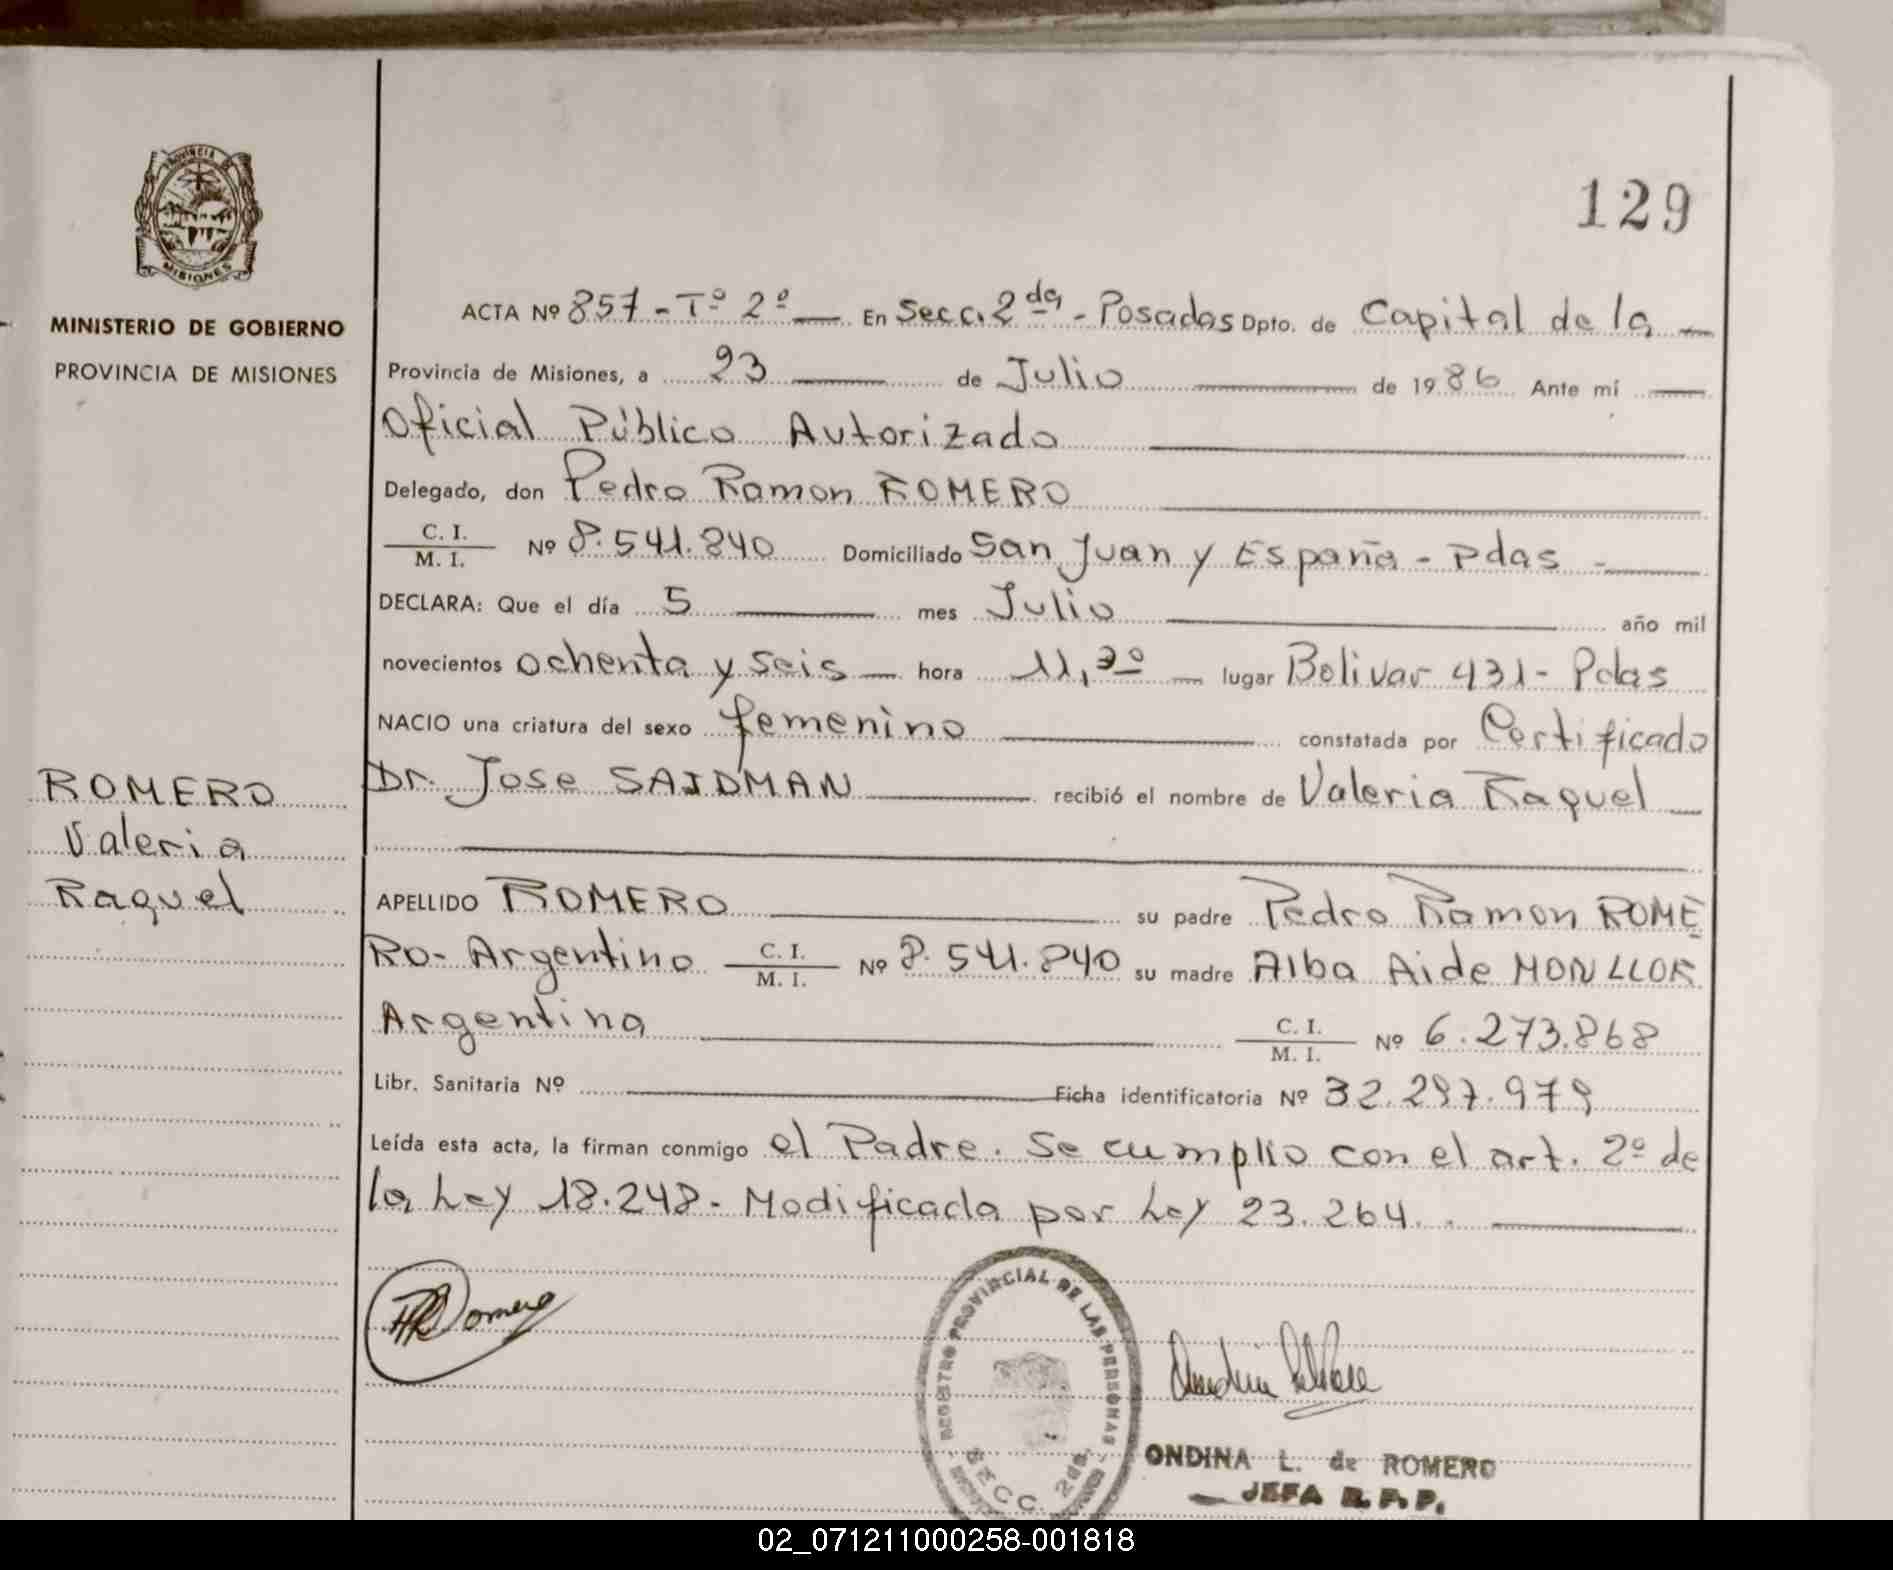 129
PROVINCIA DE
MISIONES
MINISTERIO DE GOBIERNO
PROVINCIA DE MISIONES
ACTA Nº 857 - Tº 2º — En Secc. 2da - Posadas Dpto. de Capital de la —
Provincia de Misiones, a 23 — de Julio — de 1986 Ante mí —
Oficial Público Autorizado —
Delegado, don Pedro Ramon ROMERO —
C. I.
M. I. Nº 8.541.840 Domiciliado San Juan y España - Pdas - —
DECLARA: Que el día 5 — mes Julio — año mil
novecientos ochenta y seis — hora 11,30 — lugar Bolivar 431 - Pdas
NACIO una criatura del sexo femenino — constatada por Certificado
Dr. Jose SAIDMAN — recibió el nombre de Valeria Raquel —
ROMERO
Valeria
Raquel
APELLIDO ROMERO — su padre Pedro Ramon ROME
RO - Argentino C. I.
M. I. Nº 8.541.840 su madre Alba Aide MONLLOR
Argentina — C. I.
M. I. Nº 6.273.868
Libr. Sanitaria Nº — Ficha identificatoria Nº 32.297.979
Leída esta acta, la firman conmigo el Padre. Se cumplio con el art. 2º de
la Ley 18.248 - Modificada por Ley 23.264. —
Romero
REGISTRO PROVINCIAL DE LAS PERSONAS
SECC. 2da.
ONDINA L. de ROMERO
JEFA R. P. P.
02_071211000258-001818